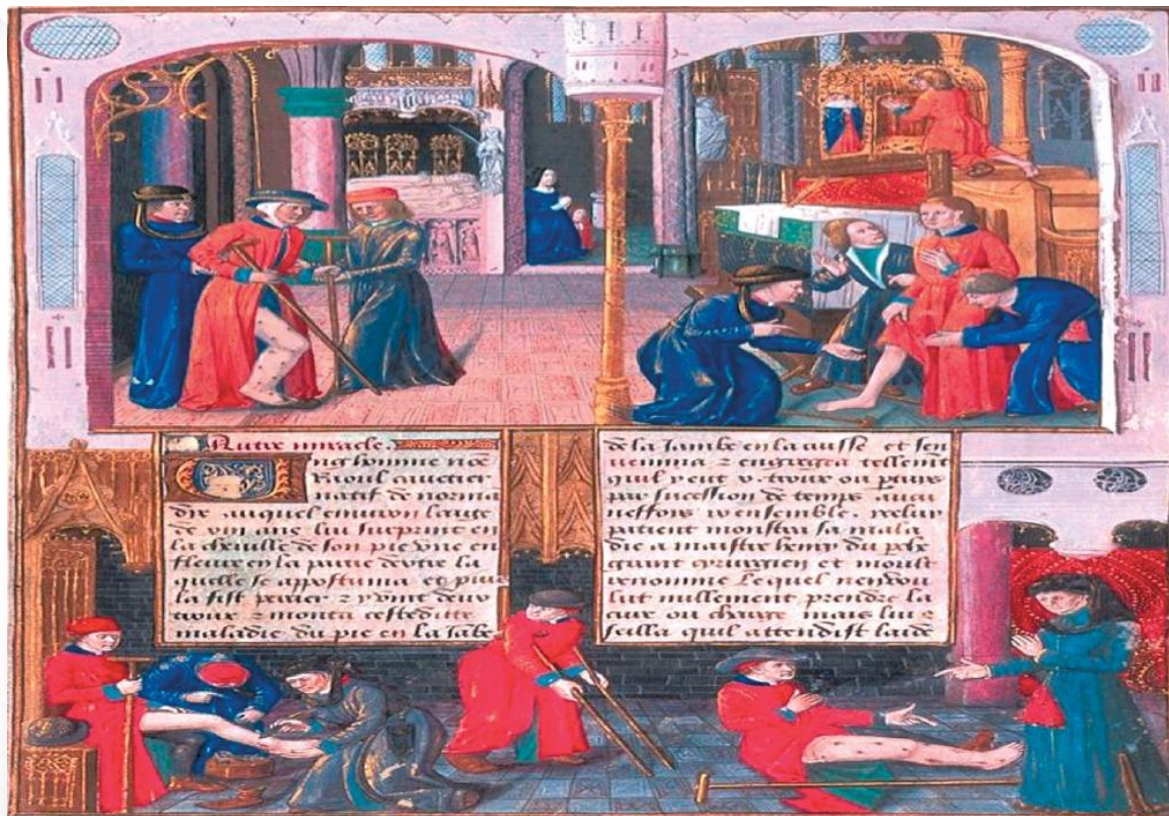 Autre miracle.
Ung homme nõe
Raoul cauetier
natif de norma
die auquel enuiron laage
de ans lui surprint en
la cheuille de son pie vne en
fleure en la partie la
quelle se appostuma et puis
la fist percier z y vint deux
troux z monta ceste ditte
maladie du pie en la iãbe
de la Jambe en la cuisse et sen
uenima z engregea tellemẽt
quil y eut v. troux ou plaies
par sucession de temps aucu
neffois ensemble. ycelui
pacient monstra sa mala
die a maistre henry du
grant cyrurgien et moult
renomme Lequel nen vou
lut nullement prendre la
cure ou charge mais lui
seilla quil attendist laide